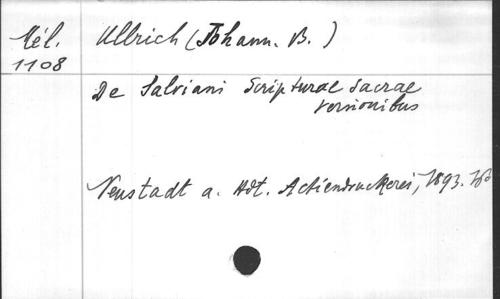 Mél.
1108
Ullrich (Johann. B.)
De Salviani Scripturae Sacrae
versionibus
Neustadt a. Hdt. Actiendruckerei, 1893. 8°